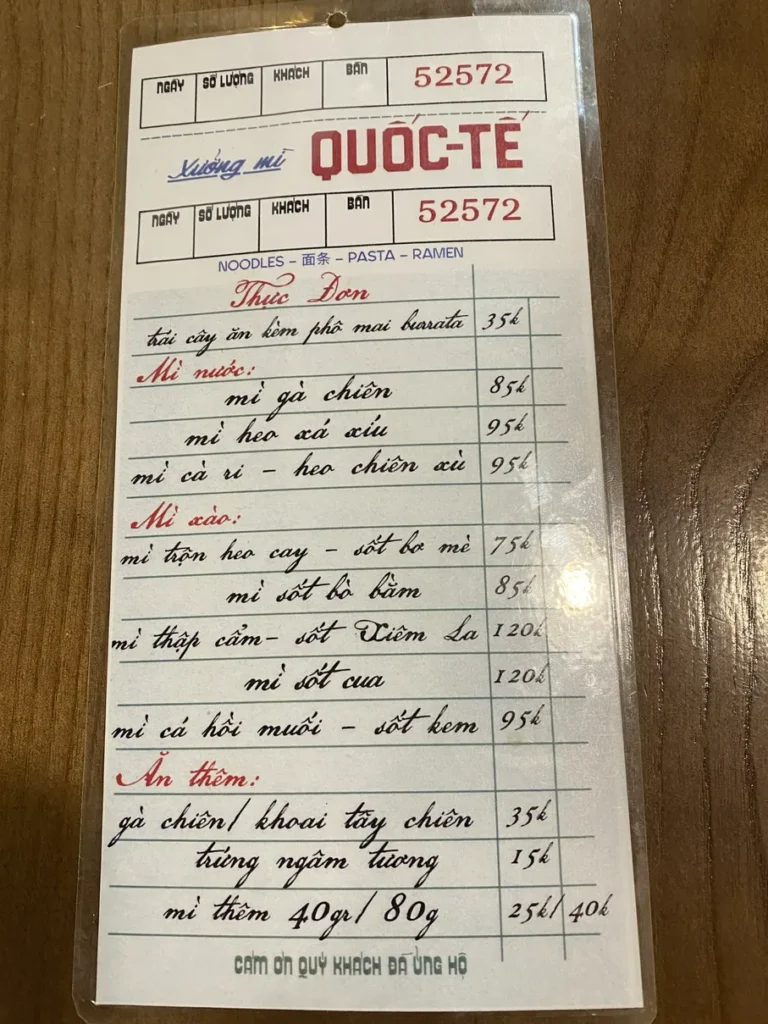 NGÀY SỐ LƯỢNG KHÁCH BÀN 52572
Xưởng mì QUỐC-TẾ
NGÀY SỐ LƯỢNG KHÁCH BÀN 52572
NOODLES - 面条 - PASTA - RAMEN
Thực Đơn
trái cây ăn kèm phô mai burrata 35k
Mì nước:
mì gà chiên 85k
mì heo xá xíu 95k
mì cà ri - heo chiên xù 95k
Mì xào:
mì trộn heo cay - sốt bơ mè 75k
mì sốt bò bằm 85k
mì thập cẩm - sốt Xiêm La 120k
mì sốt cua 120k
mì cá hồi muối - sốt kem 95k
Ăn thêm:
gà chiên/ khoai tây chiên 35k
trứng ngâm tương 15k
mì thêm 40gr/ 80g 25k/ 40k
CẢM ƠN QUÝ KHÁCH ĐÃ ỦNG HỘ